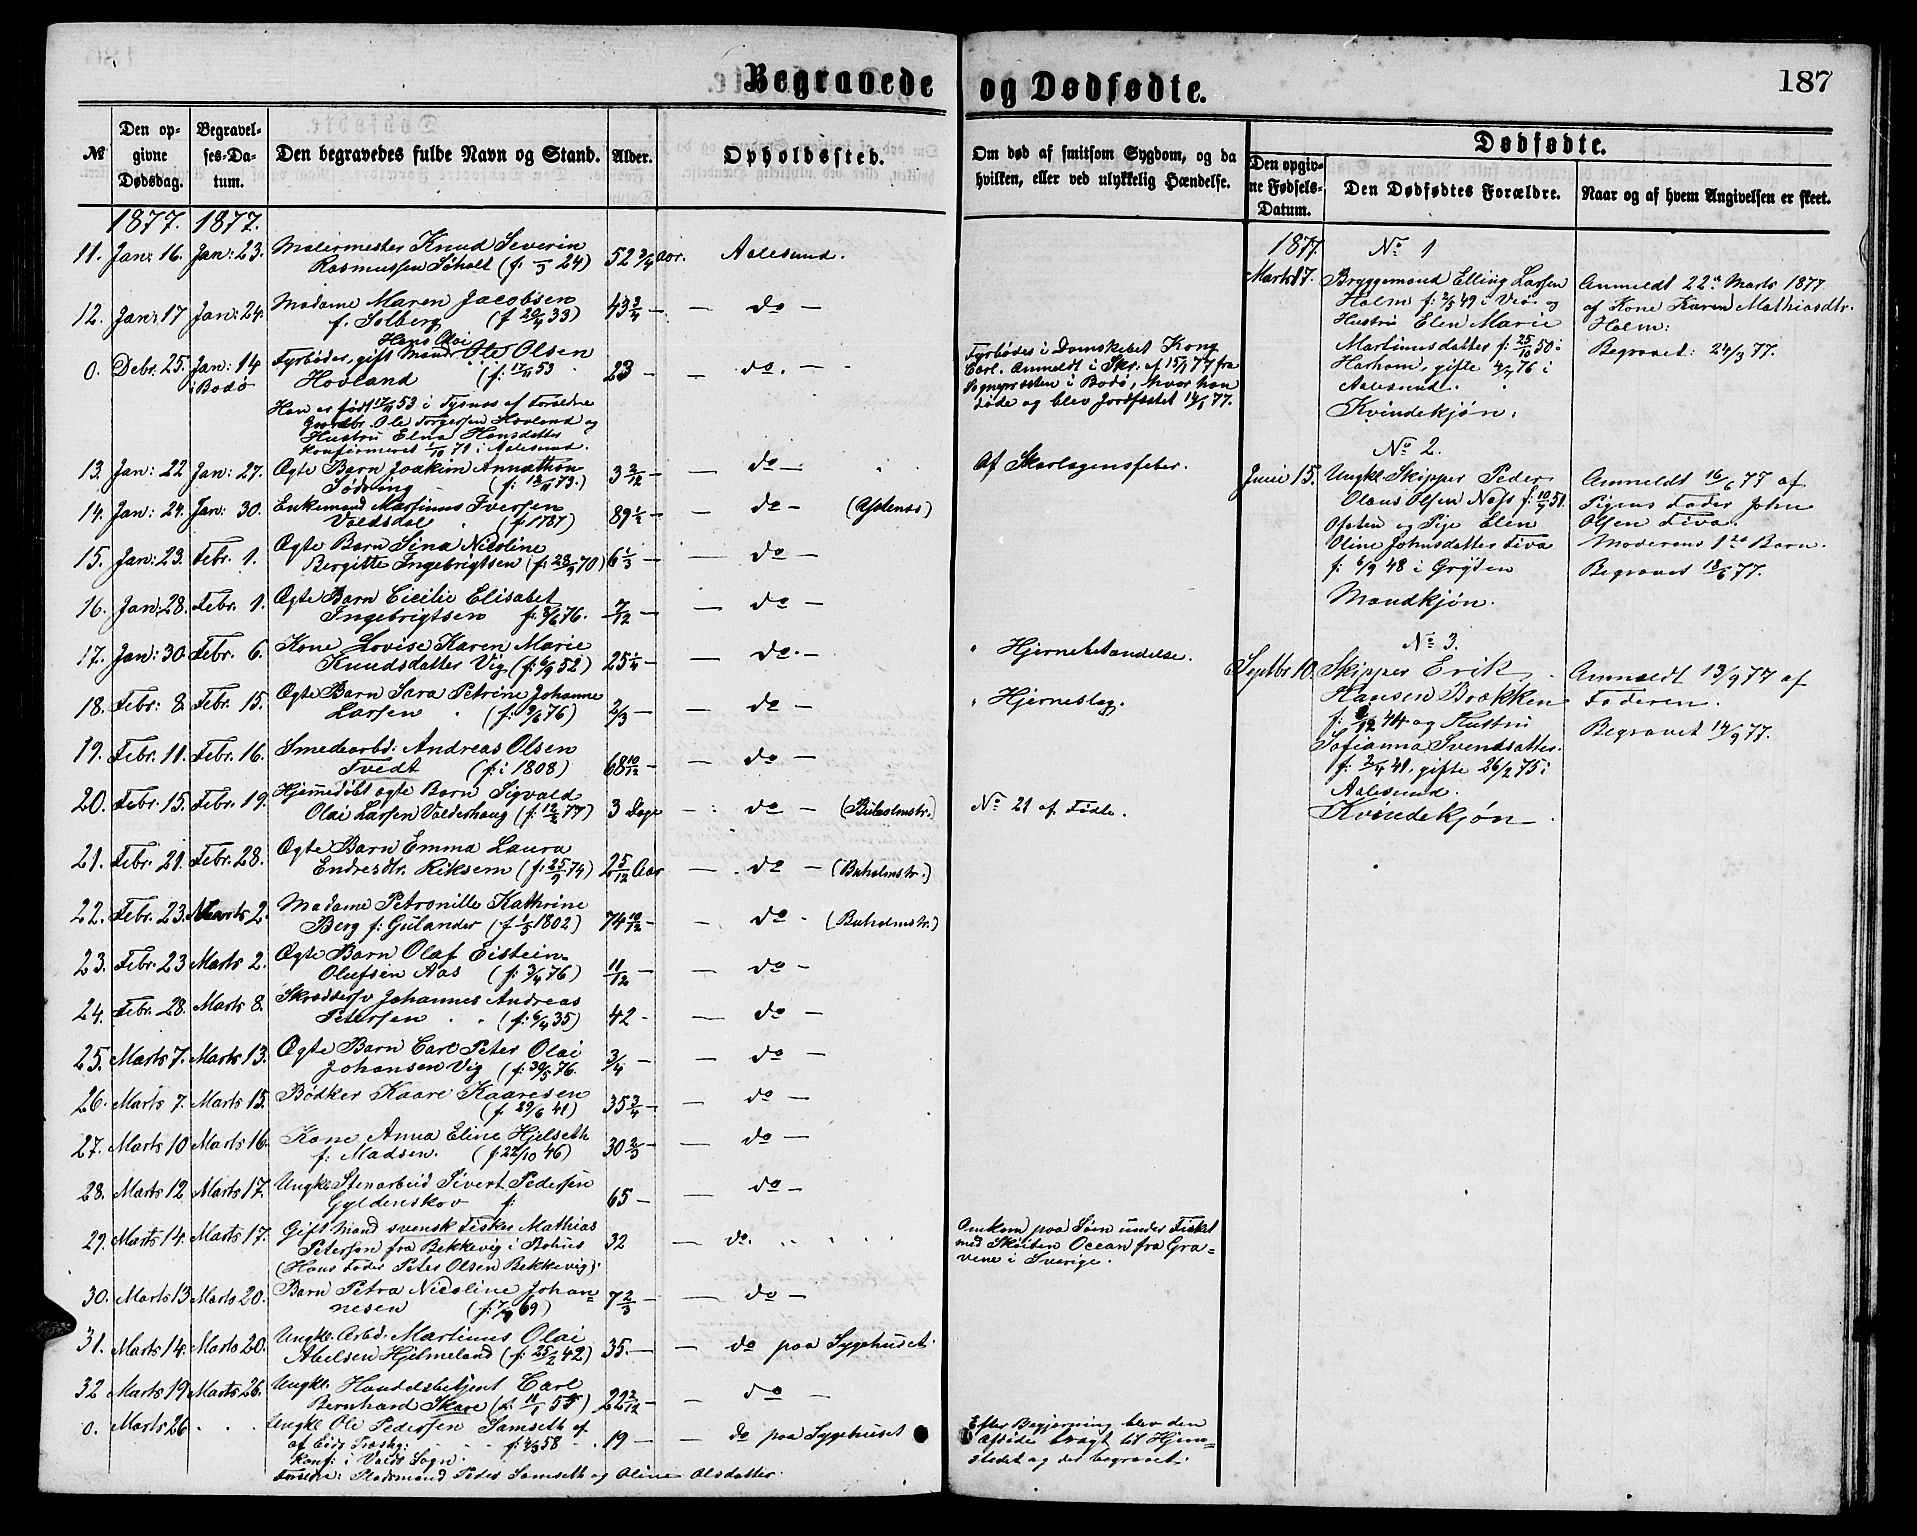 Begravede og Dødfødte.
187
№
Den opgivne Dødsdag.
Begravelses-Datum.
Den begravedes fulde Navn og Stand.
Alder.
Opholdssted.
Om død af smitsom Sygdom, og da hvilken, eller ved ulykkelig Hændelse.
Dødfødte.
Den opgivne Fødsels-Datum.
Den Dødfødtes Forældre.
Naar og af hvem Angivelsen er skeet.
1877. 1877.
11. Jan: 16. Jan: 23. Malermester Knud Severin
Rasmussen Søholt (f: 24) 52 3/4 Aar. Aalesund.
12. Jan: 17 Jan: 24. Madame Maren Jacobsen
f. Solberg (f 20/4 33) 43 3/4 — — do —
Hans Olai
0. Debr. 25. Jan: 14 i Bodø Fyrbøder, gift Mand Ole Olsen
Hovland (f: 17/11 53 23 — — do. —
Han er født 17/11 53 i Tysnæs af Forældre
Gaardbr. Ole Torgersen Hovland og
Hustru Elna Hansdatter
Konfirmeret 1/10 71 i Aalesund.
Fyrbøder i Damskebet Kong
Carl. Anmeldt i Skr. af 15/1 77 fra
Sognepræsten i Bodø, hvor han
døde og blev Jordfæstet 14/1 77.
13. Jan: 22 Jan: 27. Ægte Barn Joakim Annathon
Sødring (f: 18/11 73.) 3 2/12 — — do — Af Skarlagensfeber.
14. Jan: 24. Jan: 30. Enkemand Martinus Iversen
Valdsdal (f 1787) 89 1/2 — — do —
15. Jan: 23. Febr. 1. Ægte Barn Sina Nicoline
Bergitte Ingebrigtsen (f: 28/9 70) 6 1/3 — — do —
16. Jan: 28. Febr. 1. Ægte Barn Cicilie Elisabet
Ingebrigtsen f: 8/6 76. 7/12 — — do —
17. Jan: 30. Febr. 6. Kone Lovise Karen Marie
Knudsdatter Vig (f: 6/9 52) 25 1/4 — — do. — " Hjernebetændelse.
18. Febr: 8. Febr. 15. Ægte Barn Sara Petrine Johanne
Larsen (f: 9/6 76) 2/3 — — do — " Hjerneslag.
19. Febr. 11. Febr. 16. Smedearbd: Andreas Olsen
Tvedt (f: i 1808) 68 10/12 — — do —
20. Febr. 15. Febr. 19. Hjemmedøbt ægte Barn Sigvald
Olai Larsen Valderhaug (f: 12/2 77) 3 Dage — do — (Buholmstr.) No 21 af Fødte.
21. Febr. 21. Febr. 28. Ægte Barn Emma Laura
Endresdtr. Riksem (f: 25/9 74) 2 5/12 Aar — do — (Buholmstr.)
22. Febr. 23. Marts 2. Madame Petronille Kathrine
Berg f: Gulander (f 1/5 1802) 74 10/12 — — do — (Buholmstr.)
23. Febr. 23 Marts 2. Ægte Barn Olaf Eistein
Olufsen Aas (f: 3/4 76) 11/12 — — do —
24. Febr. 28. Marts 8. Skræddersv Johannes Andreas
Petersen (f: 6/4 35) 42 - — do —
25. Marts 7. Marts 13. Ægte Barn Carl Peter Olai
Johansen Vig (f: 30/5 76. 3/4 — — do —
26. Marts 7. Marts 15. Bødker Kaare Kaaresen
(f. 29/6 41) 35 3/4 — — do —
27. Marts 10 Marts 16. Kone Anna Eline Hjelseth
f: Madsen. (f 22/10 46) 30 2/5 — — do —
28. Marts 12 Marts 17. Ungkl. Stenarbeid Sivert Pedersen
Gyldenskov f: 65 — — do —
29. Marts 14. Marts 17. Gift Mand svensk Fisker Mathias
Petersen fra Bekkevig i Bohus 32 — do.
(Hans Fader Peter Olsen Bekkevig).
Omkom paa Søen under Fisket
med Skøiten Ocean fra Gra=
vene i Sverige.
30. Marts 13 Marts 20. Barn Petra Nicoline Johan=
nesen (f: 7/9 69) 7 2/3 — — do —
31. Marts 14. Marts 20. Ungkl. Arbd. Martinus Olai
Abelsen Hjelmeland (f: 25/2 42) 35. — — do paa Sygehuset.
32 Marts 19 Marts 26. Ungkl. Handelsbetjent Carl
Bernhard Skare (f. 11/1 55) 22 2/12 — — do —
0. Marts 26 Ungkl Ole Pedersen Samseth af
af Eids Præstg: f: 4/3 58 19 — — do paa Sygehuset
Konf: i Volds Sogn.
Forældre: Pladsmand Peder Samseth og Oline Olsdatter.
Efter Begjæring blev den
Afdøde bragt til Hjem=
stedet og der begravet.
1877. No 1
Marts 17. Bryggemand Elling Larsen
Holm f: 2/5 49 i Veø og
Hustru Elen Marie
Martinusdatter f: 25/10 50 i
Harham, gifte 4/7 76 i
Aalesund.
Kvindekjøn.
Anmeldt 22de Marts 1877
af Kone Karen Mathiasdtr.
Holm:
Begravet: 24/3 77.
No 2.
Juni 15. Ungkl. Skipper Peder
Olaus Olsen Næss f: 10/9 51
Ørsten og Pige Elen
Oline Johnsdatter Tiva
f: 6/9 48 i Grytten
Mandkjøn.
Anmeldt 16/6 77 af
Pigens Fader John
Olsen Tiva.
Moderens 1ste Barn.
Begravet 18/6 77.
No 3.
Septbr. 10. Skipper Erik
Hansen Brækken
f: 6/12 44 og Hustru
Sofianna Svendsatter
f: 2/4 41, gifte 26/2 75 i
Aalesund.
Kvindekjøn
Anmeldt 13/9 77 af
Faderen.
Begravet 14/9 77.